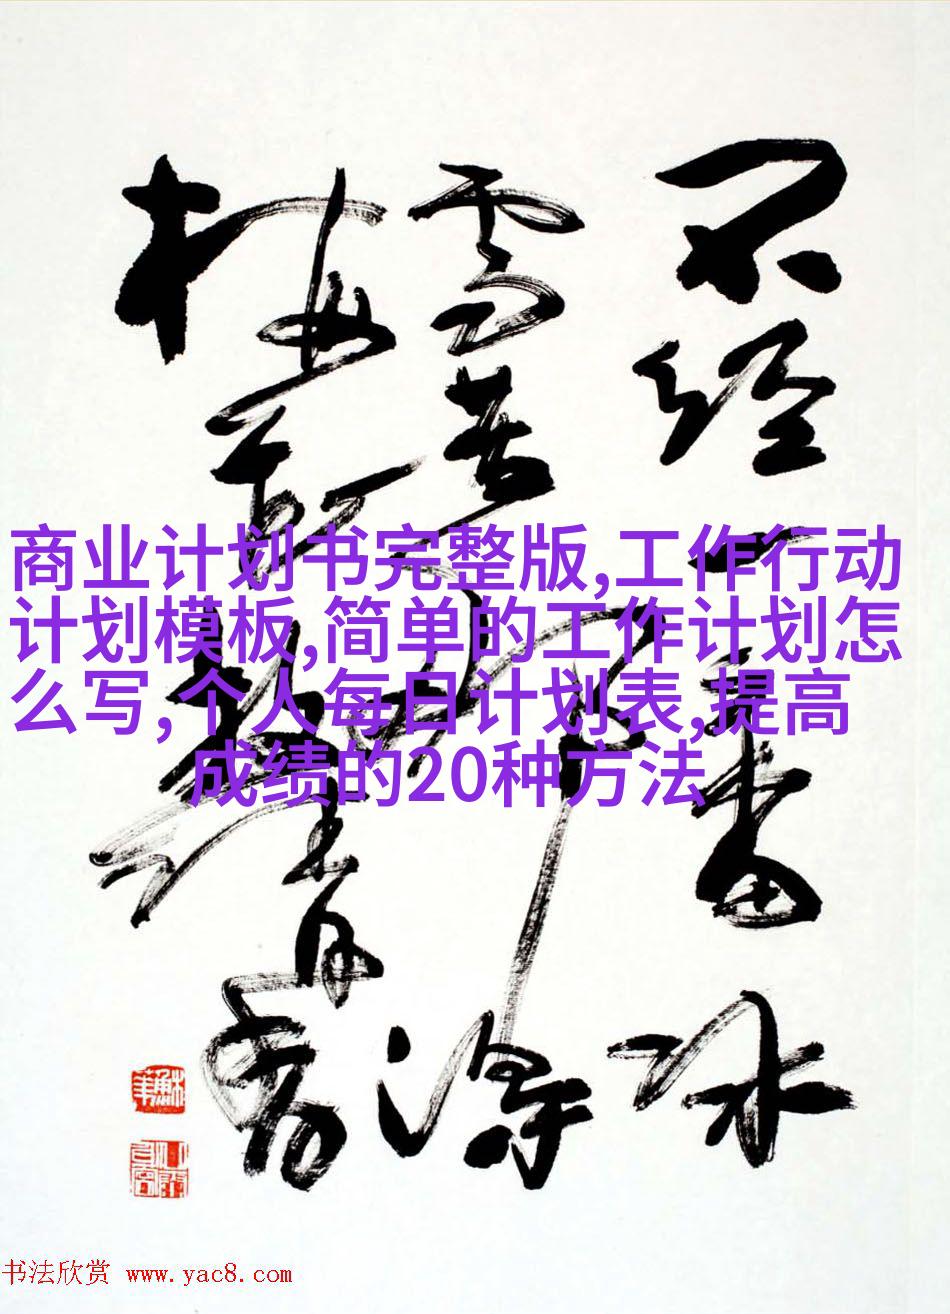 不经一番冰
雪苦那得
梅清香
商业计划书完整版,工作行动
计划模板,简单的工作计划怎
么写,个人每日计划表,提高
成绩的20种方法
书法欣赏 www.yac8.com